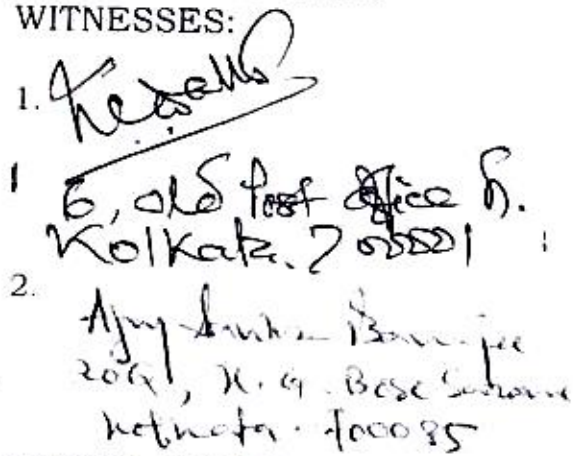 WITNESSES:
1.
6, old Post Office St.
Kolkata. 700001
2.
Ajoy Banerjee
20G, K. G. Bose Sarani
Kolkata. 700085